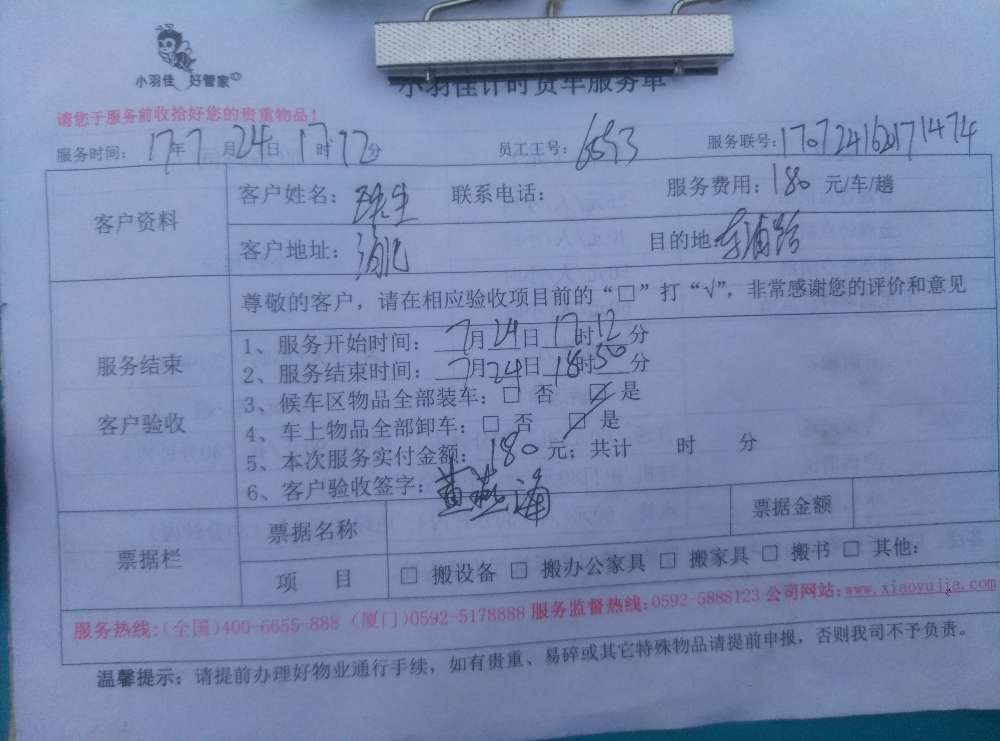 小羽佳 好管家
小羽佳计时货车服务单
请您于服务前收拾好您的贵重物品！
服务时间：17年7月24日17时12分 员工工号：6593 服务联号：
客户资料
客户姓名： 联系电话： 服务费用：180元/车/趟
客户地址： 目的地：东浦路
尊敬的客户，请在相应验收项目前的“□”打“√”，非常感谢您的评价和意见
服务结束
客户验收
1、服务开始时间：7月24日17时12分
2、服务结束时间：7月24日18时50分
3、候车区物品全部装车：□ 否 ☑ 是
4、车上物品全部卸车：□ 否 ☑ 是
5、本次服务实付金额：180元；共计 时 分
6、客户验收签字：黄燕
票据栏
票据名称 票据金额
项 目 □ 搬设备 □ 搬办公家具 □ 搬家具 □ 搬书 □ 其他：
服务热线：(全国)400-6655-888 (厦门)0592-5178888 服务监督热线：0592-5888123 公司网站：www.xiaoyujia.com
温馨提示：请提前办理好物业通行手续，如有贵重、易碎或其它特殊物品请提前申报，否则我司不予负责。